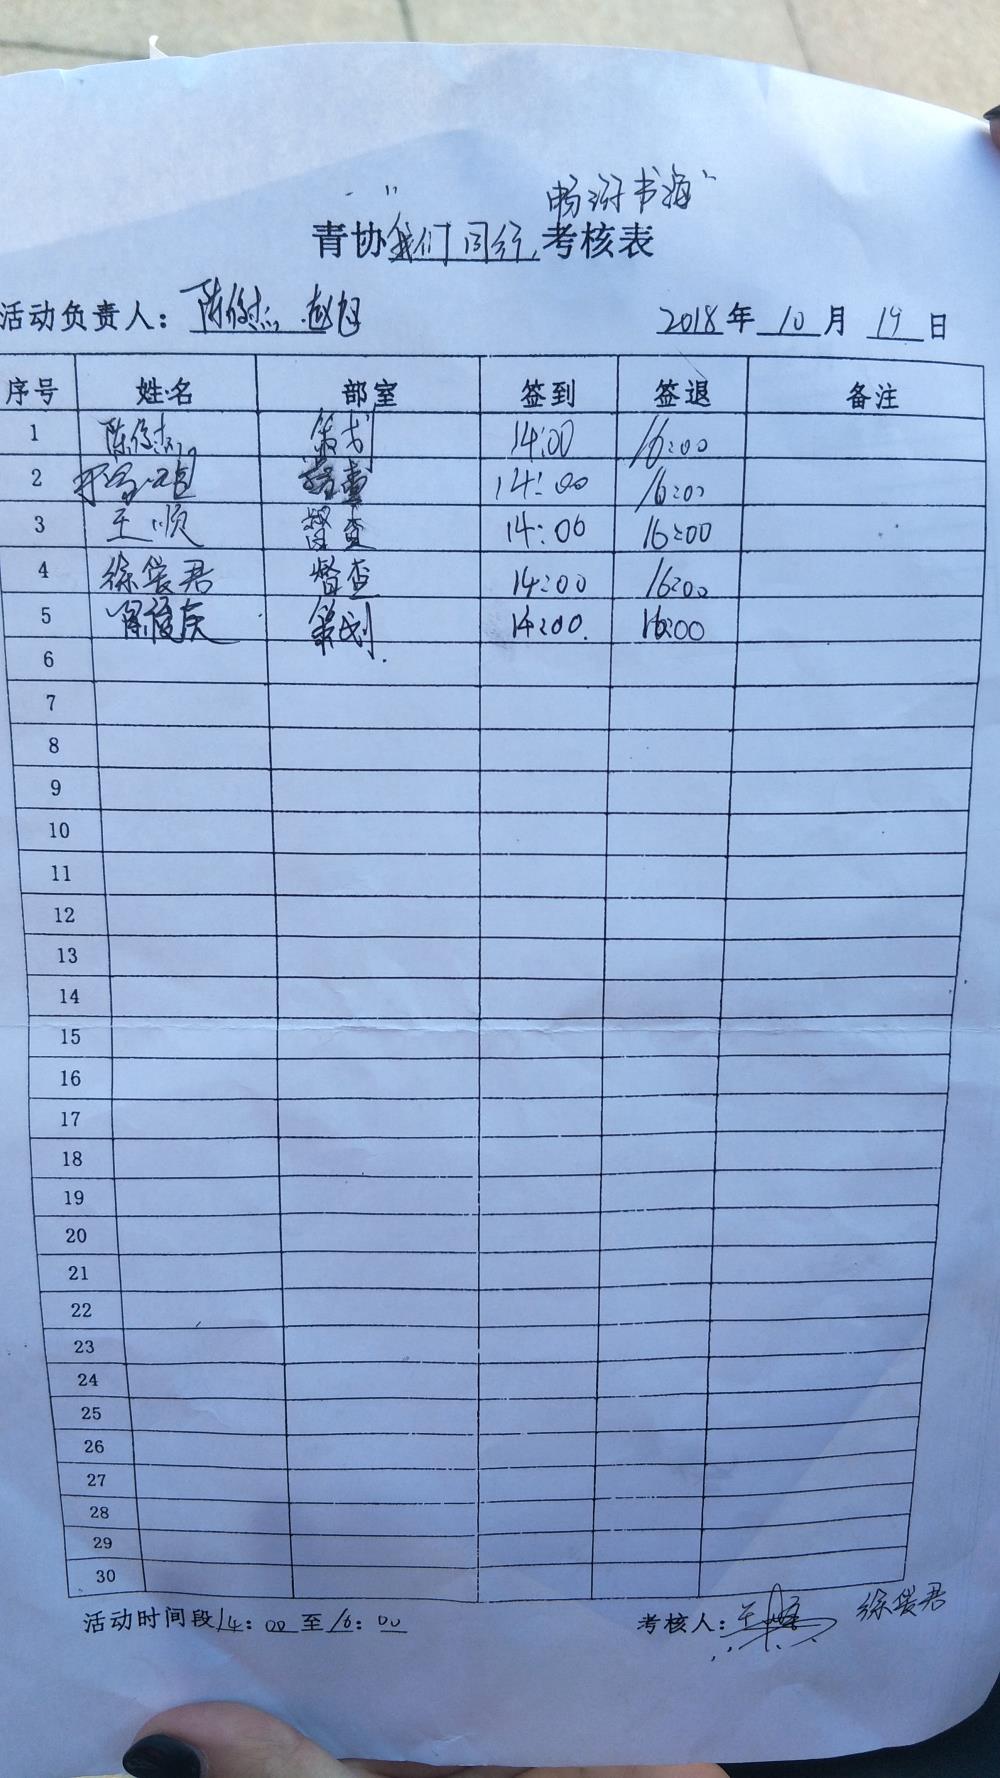 畅游书海"
青协"我们同行 考核表
活动负责人：陈俊杰 赵旭 2018年10月19日
序号 姓名 部室 签到 签退 备注
1 陈俊杰 策划 14:00 16:00
2 督查 14:00 16:00
3 王顺 督查 14:00 16:00
4 徐裳君 督查 14:00 16:00
5 策划 14:00 16:00
6
7
8
9
10
11
12
13
14
15
16
17
18
19
20
21
22
23
24
25
26
27
28
29
30
活动时间段14:00至16:00 考核人: 徐裳君